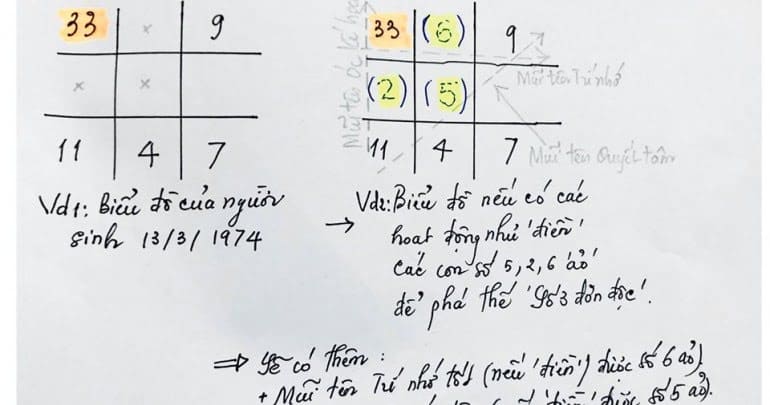 33 x 9
33 (6) 9
x x
(2) (5)
11 4 7
11 4 7
Mũi tên Óc kế hoạch
Mũi tên Trí nhớ
Mũi tên Quyết tâm
Vd1: Biểu đồ của người
sinh 13/3/1974
→ Vd2: Biểu đồ nếu có các
hoạt động như 'điền'
các con số 5, 2, 6 'ảo'
để phá thế 'số 3 đơn độc'.
⇒ Sẽ có thêm:
+ Mũi tên Trí nhớ tốt (nếu 'điền') được số 6 ảo)
'điền' được số 5 ảo).